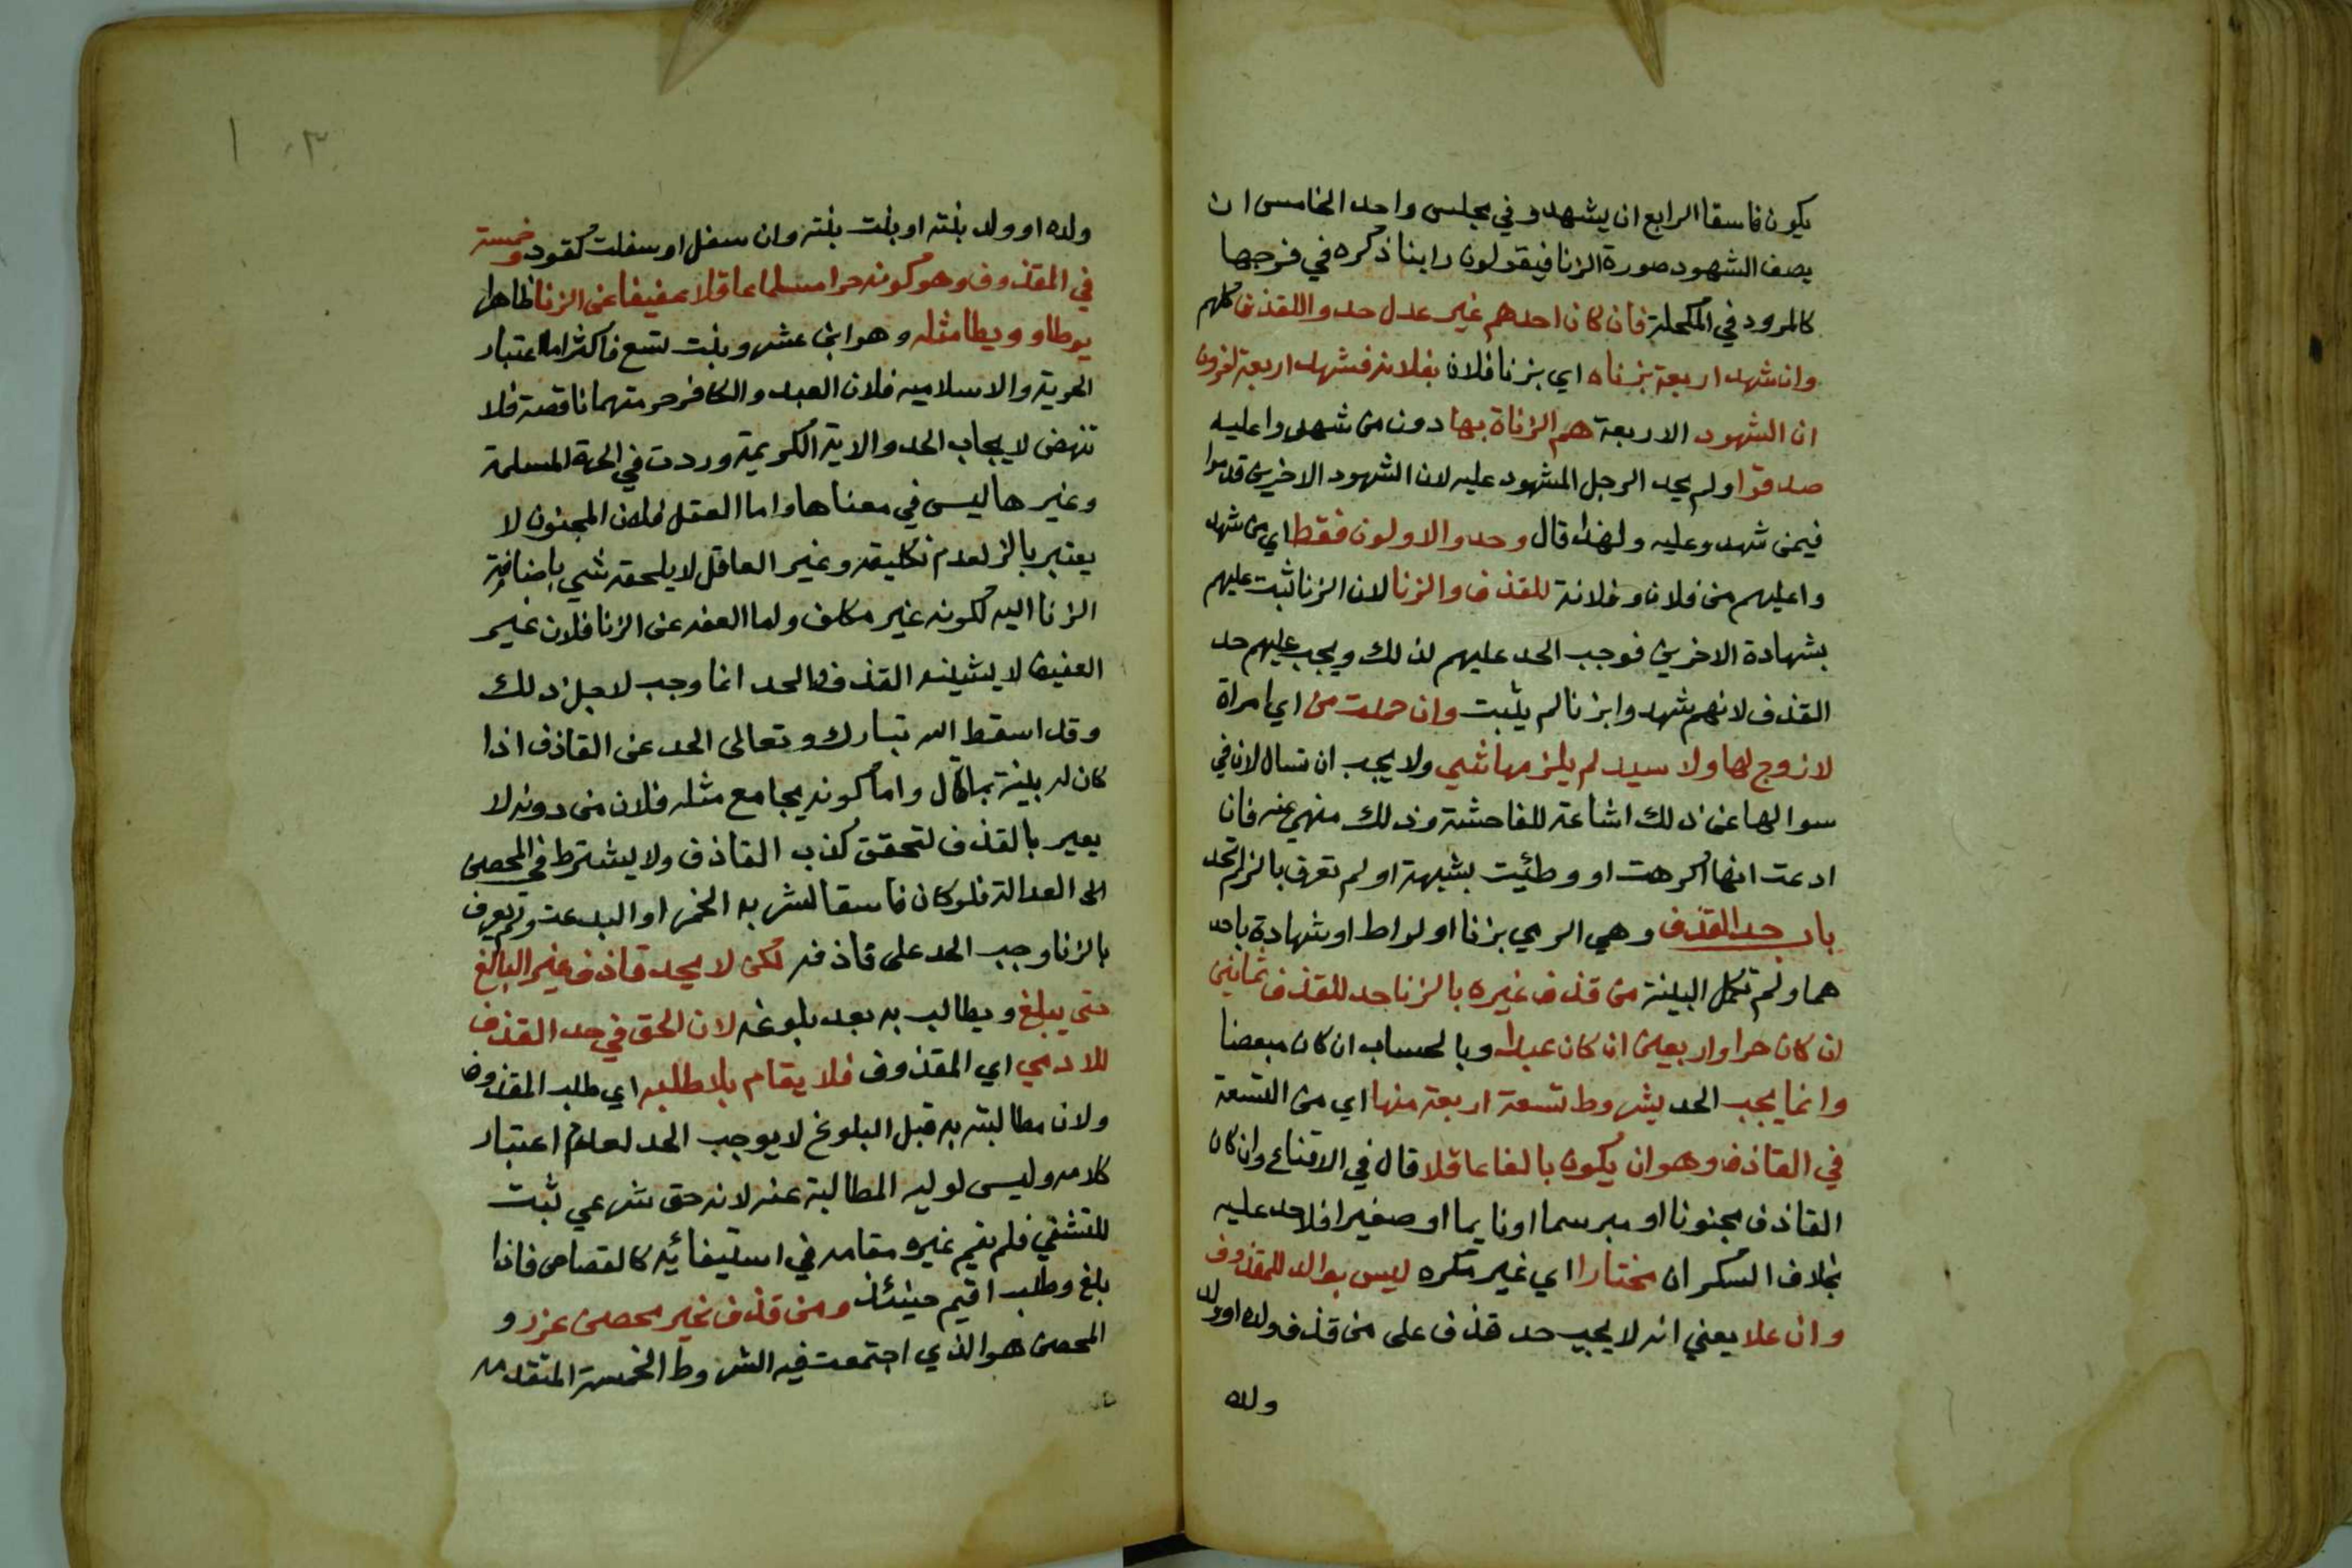 يكون فاسقا الرابع ان يشهدو في مجلس واحد الخامس ان
يصف الشهود صورة الزنا فيقولون راينا ذكره في فرجها
كالمرود في المكحلة فان كان احدهم غير عدل حدوا للقذف كلهم
وان شهد اربعة بزناه اي بزنا فلان بفلانه فشهد اربعة اخرون
ان الشهود الاربعة هم الزناة بها دون من شهدوا عليه
صدقوا ولم يحد الرجل المشهود عليه لان الشهود الاخرين قدحوا
فيمن شهدو عليه ولهذا قال وحد والاولون فقط اي من شهد
واعليهم من فلان وفلانة للقذف والزنا لان الزنا ثبت عليهم
بشهادة الاخرين فوجب الحد عليهم لذلك ويجب عليهم حد
القذف لانهم شهدوا بزنا لم يثبت وان حملت من اي امراة
لا زوج لها ولا سيد لم يلزمها شي ولا يجب ان تسال لان في
سوالها عن ذلك اشاعة للفاحشة وذلك منهي عنه فان
ادعت انها اكرهت او وطئيت بشبهة او لم تعرف بالزنا لم تحد
باب حد القذف وهي الرمي بزنا او لواط او شهادة باحد
هما ولم تكمل البينة من قذف غيره بالزنا حد للقذف ثمانين
ان كان حرا واربعين ان كان عبدا وبالحساب ان كان مبعضا
وانما يجب الحد بشروط تسعة اربعة منها اي من التسعة
في القاذف وهو ان يكون بالغا عاقلا قال في الاقناع وان كان
القاذف مجنونا او مبرسما او نايما او صغيرا فلا حد عليه
بخلاف السكران مختارا اي غير مكره ليس بوالد للمقذوف
وان علا يعني انه لا يجب حد قذف على من قذف ولده او ولد
ولده
١٠٣
ولده او ولد بنته او بنت بنته وان سفل او سفلت كقود وخمسة
في المقذوف وهو كونه حرا مسلما عاقلا عفيفا عن الزنا ظاهرا
يوطا او ويطا مثله وهو ابن عشر وبنت تسع فاكثر اما اعتبار
الحرية والاسلاميه فلان العبد والكافر حرمتهما ناقصة فلا
تنهض لايجاب الحد والاية الكريمة وردت في الحرة المسلمة
وغيرها ليس في معناها واما العقل فلان المجنون لا
يعتبر بالزنا لعدم تكليفه وغير العاقل لا يلحقه شي باضافة
الزنا اليه لكونه غير مكلف واما العفه عن الزنا فلان غير
العفيف لا يشينه القذف والحد انما وجب لاجل ذلك
وقد اسقط الله تبارك وتعالى الحد عن القاذف اذا
كان له بينة بما قال واما كونه يجامع مثله فلان من دونه لا
يعير بالقذف لتحقق كذب القاذف ولا يشترط في المحصن
العدالة فلو كان فاسقا لشربه الخمر او البدعت ولم يعرف
بالزنا وجب الحد على قاذفه لكن لا يحد قاذف غير البالغ
حتى يبلغ ويطالب به بعد بلوغه لان الحق في حد القذف
للادمي اي المقذوف فلا يقام بلا طلبه اي طلب المقذوف
ولان مطالبته به قبل البلوغ لا يوجب الحد لعدم اعتبار
كلامه وليس لوليه المطالبة عنه لانه حق شرعي ثبت
للتشفي فلم يقم غيره مقامه في استيفائيه كالقصاص فاذا
بلغ وطلب اقيم حينئذ ومن قذف غير محصن عزر و
المحصن هو الذي اجتمعت فيه الشروط الخمسة المتقدمه